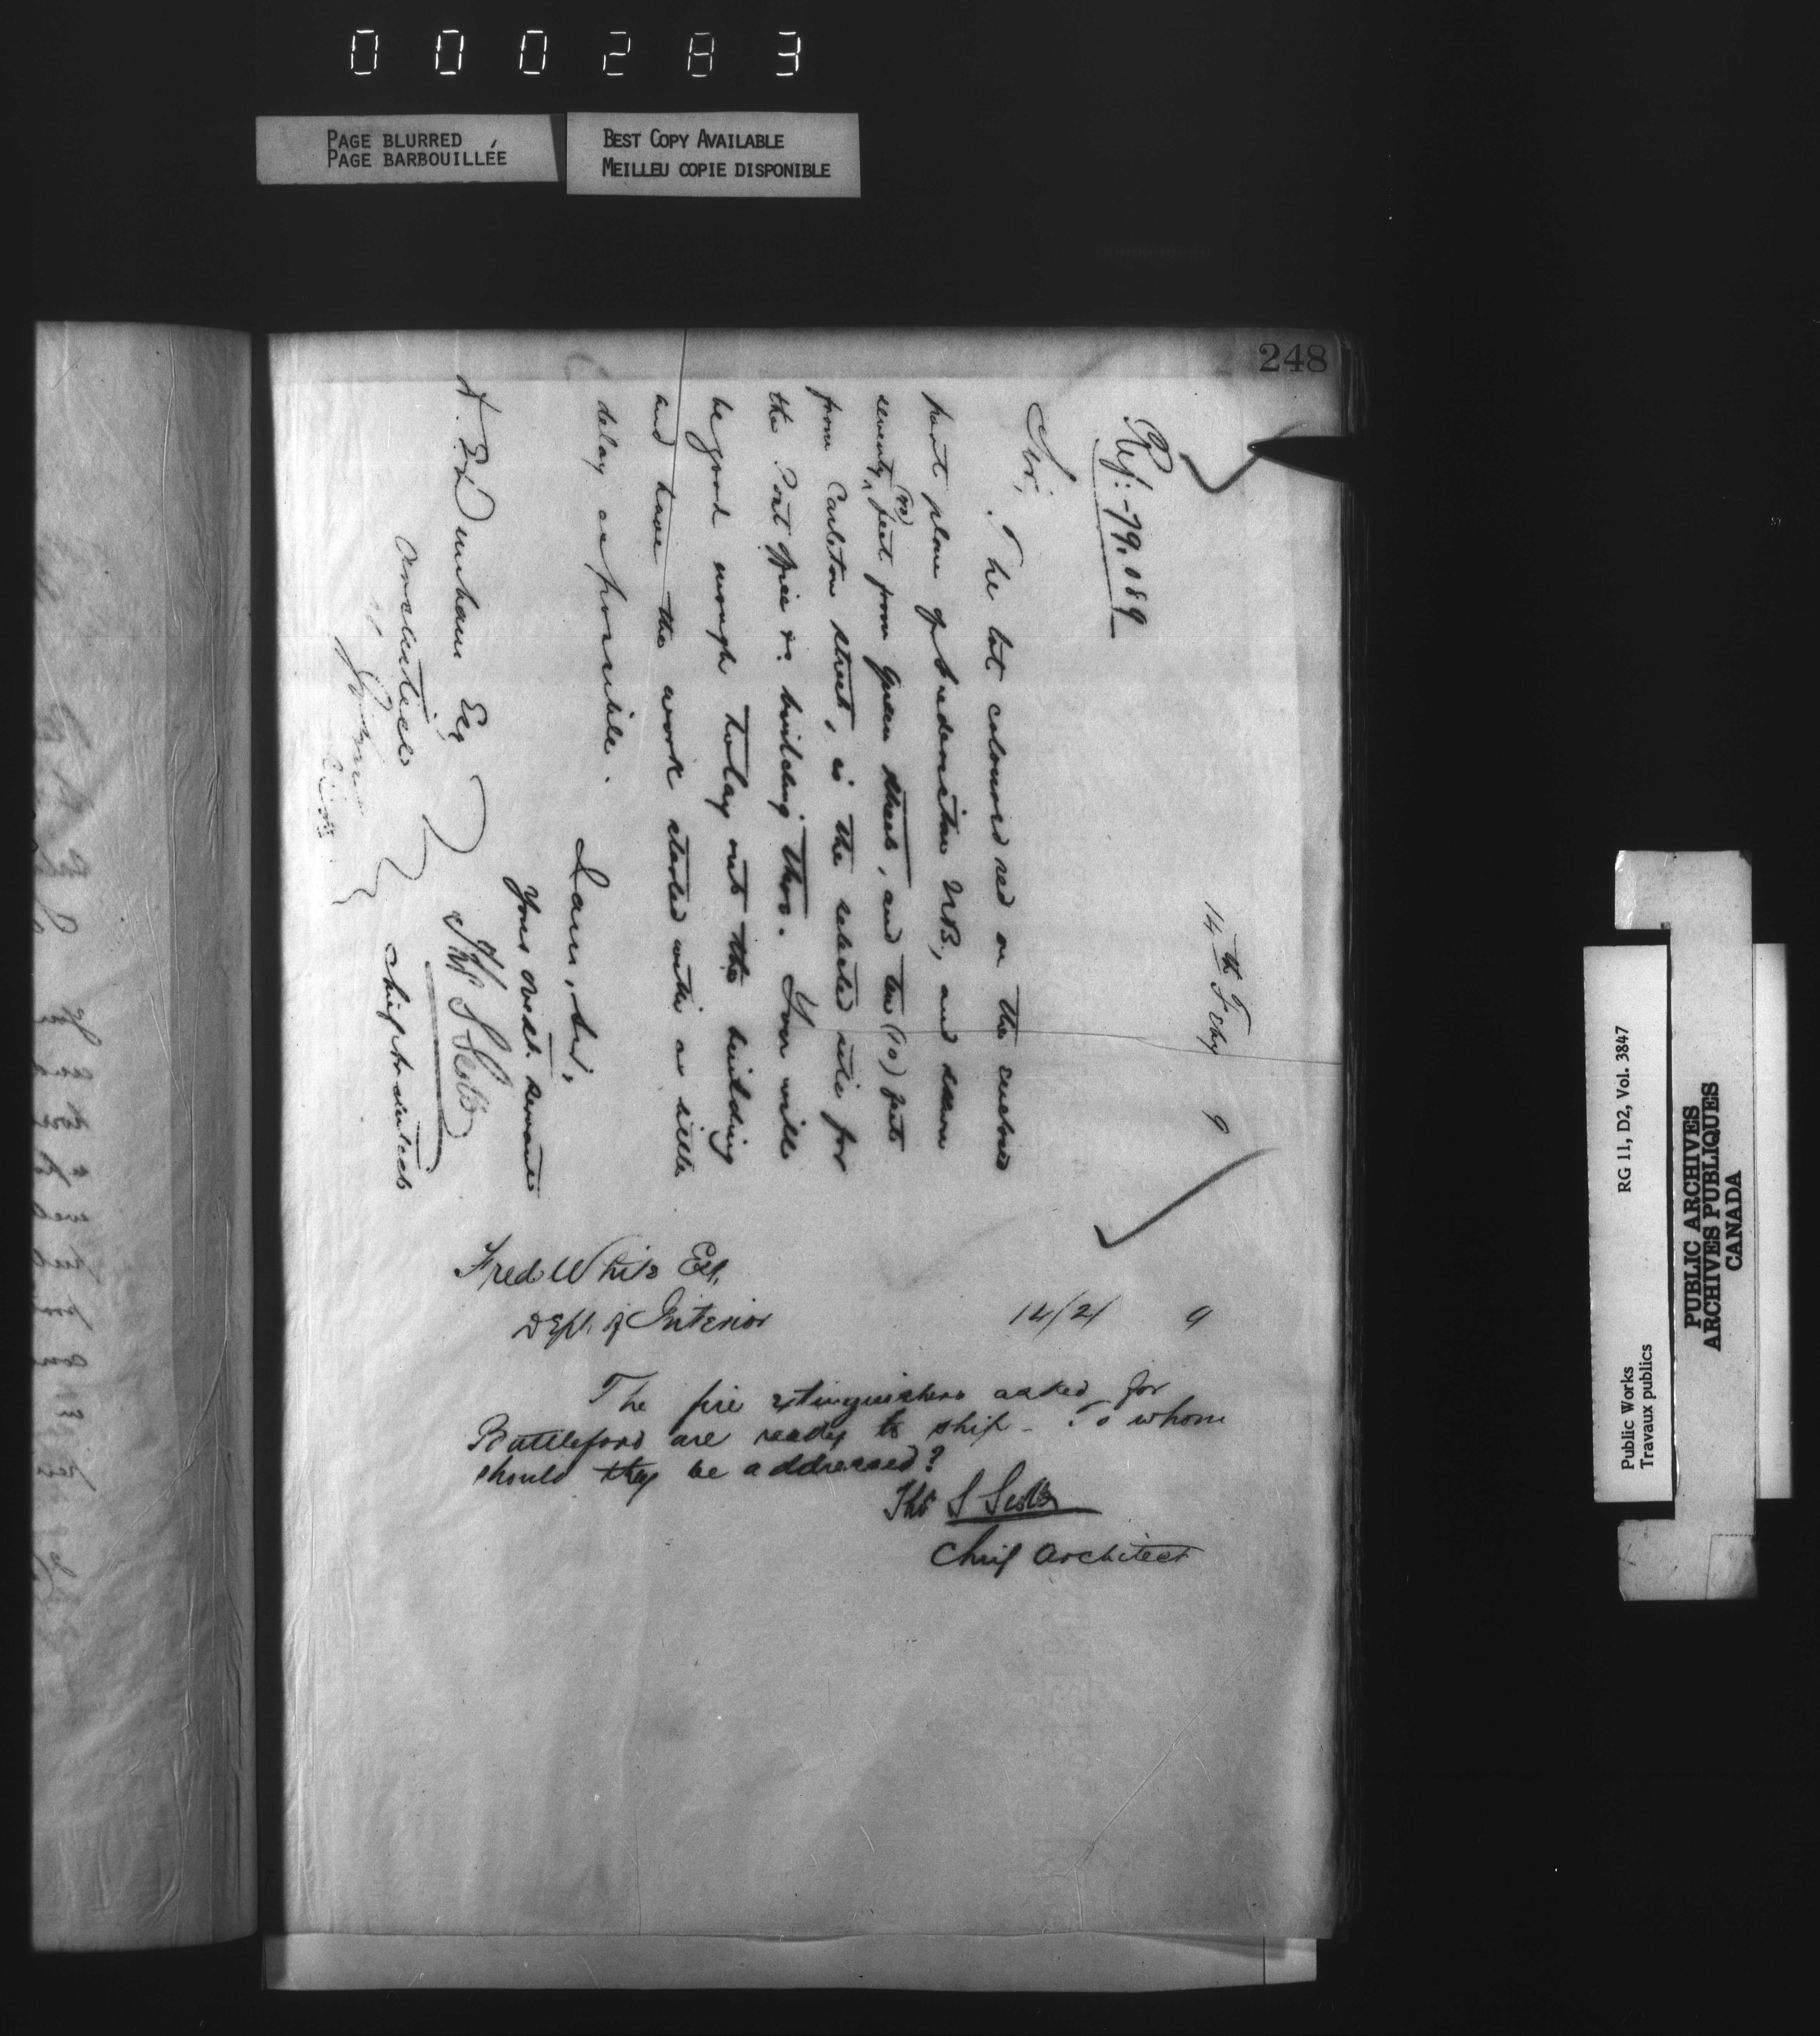 000283
PAGE BLURRED
PAGE BARBOUILLÉE
BEST COPY AVAILABLE
MEILLEU COPIE DISPONIBLE
248
14th Feby 9
Ref: 79.089
Sir,
The lot coloured red on the enclosed
part plan of Fredericton N.B., and shown
seventy (70) feet from Queen street, and ten (10) feet
from Carleton street, is the selected site for
the Post Office &c. building there. You will
be good enough to lay out the building
and have the work started with as little
delay as possible.
I am, Sir,
Your Obdt. servant
Thos S Scott
Chief Architect
Dunham Esq
Architect
St Johns
Fred White Esq.
Dept. of Interior 14/2/ 9
The fire extinguishers asked for
Battleford are ready to ship - To whom
should they be addressed?
Thos S Scott
Chief Architect
Public Works RG 11, D2, Vol. 3847
Travaux publics
PUBLIC ARCHIVES
ARCHIVES PUBLIQUES
CANADA